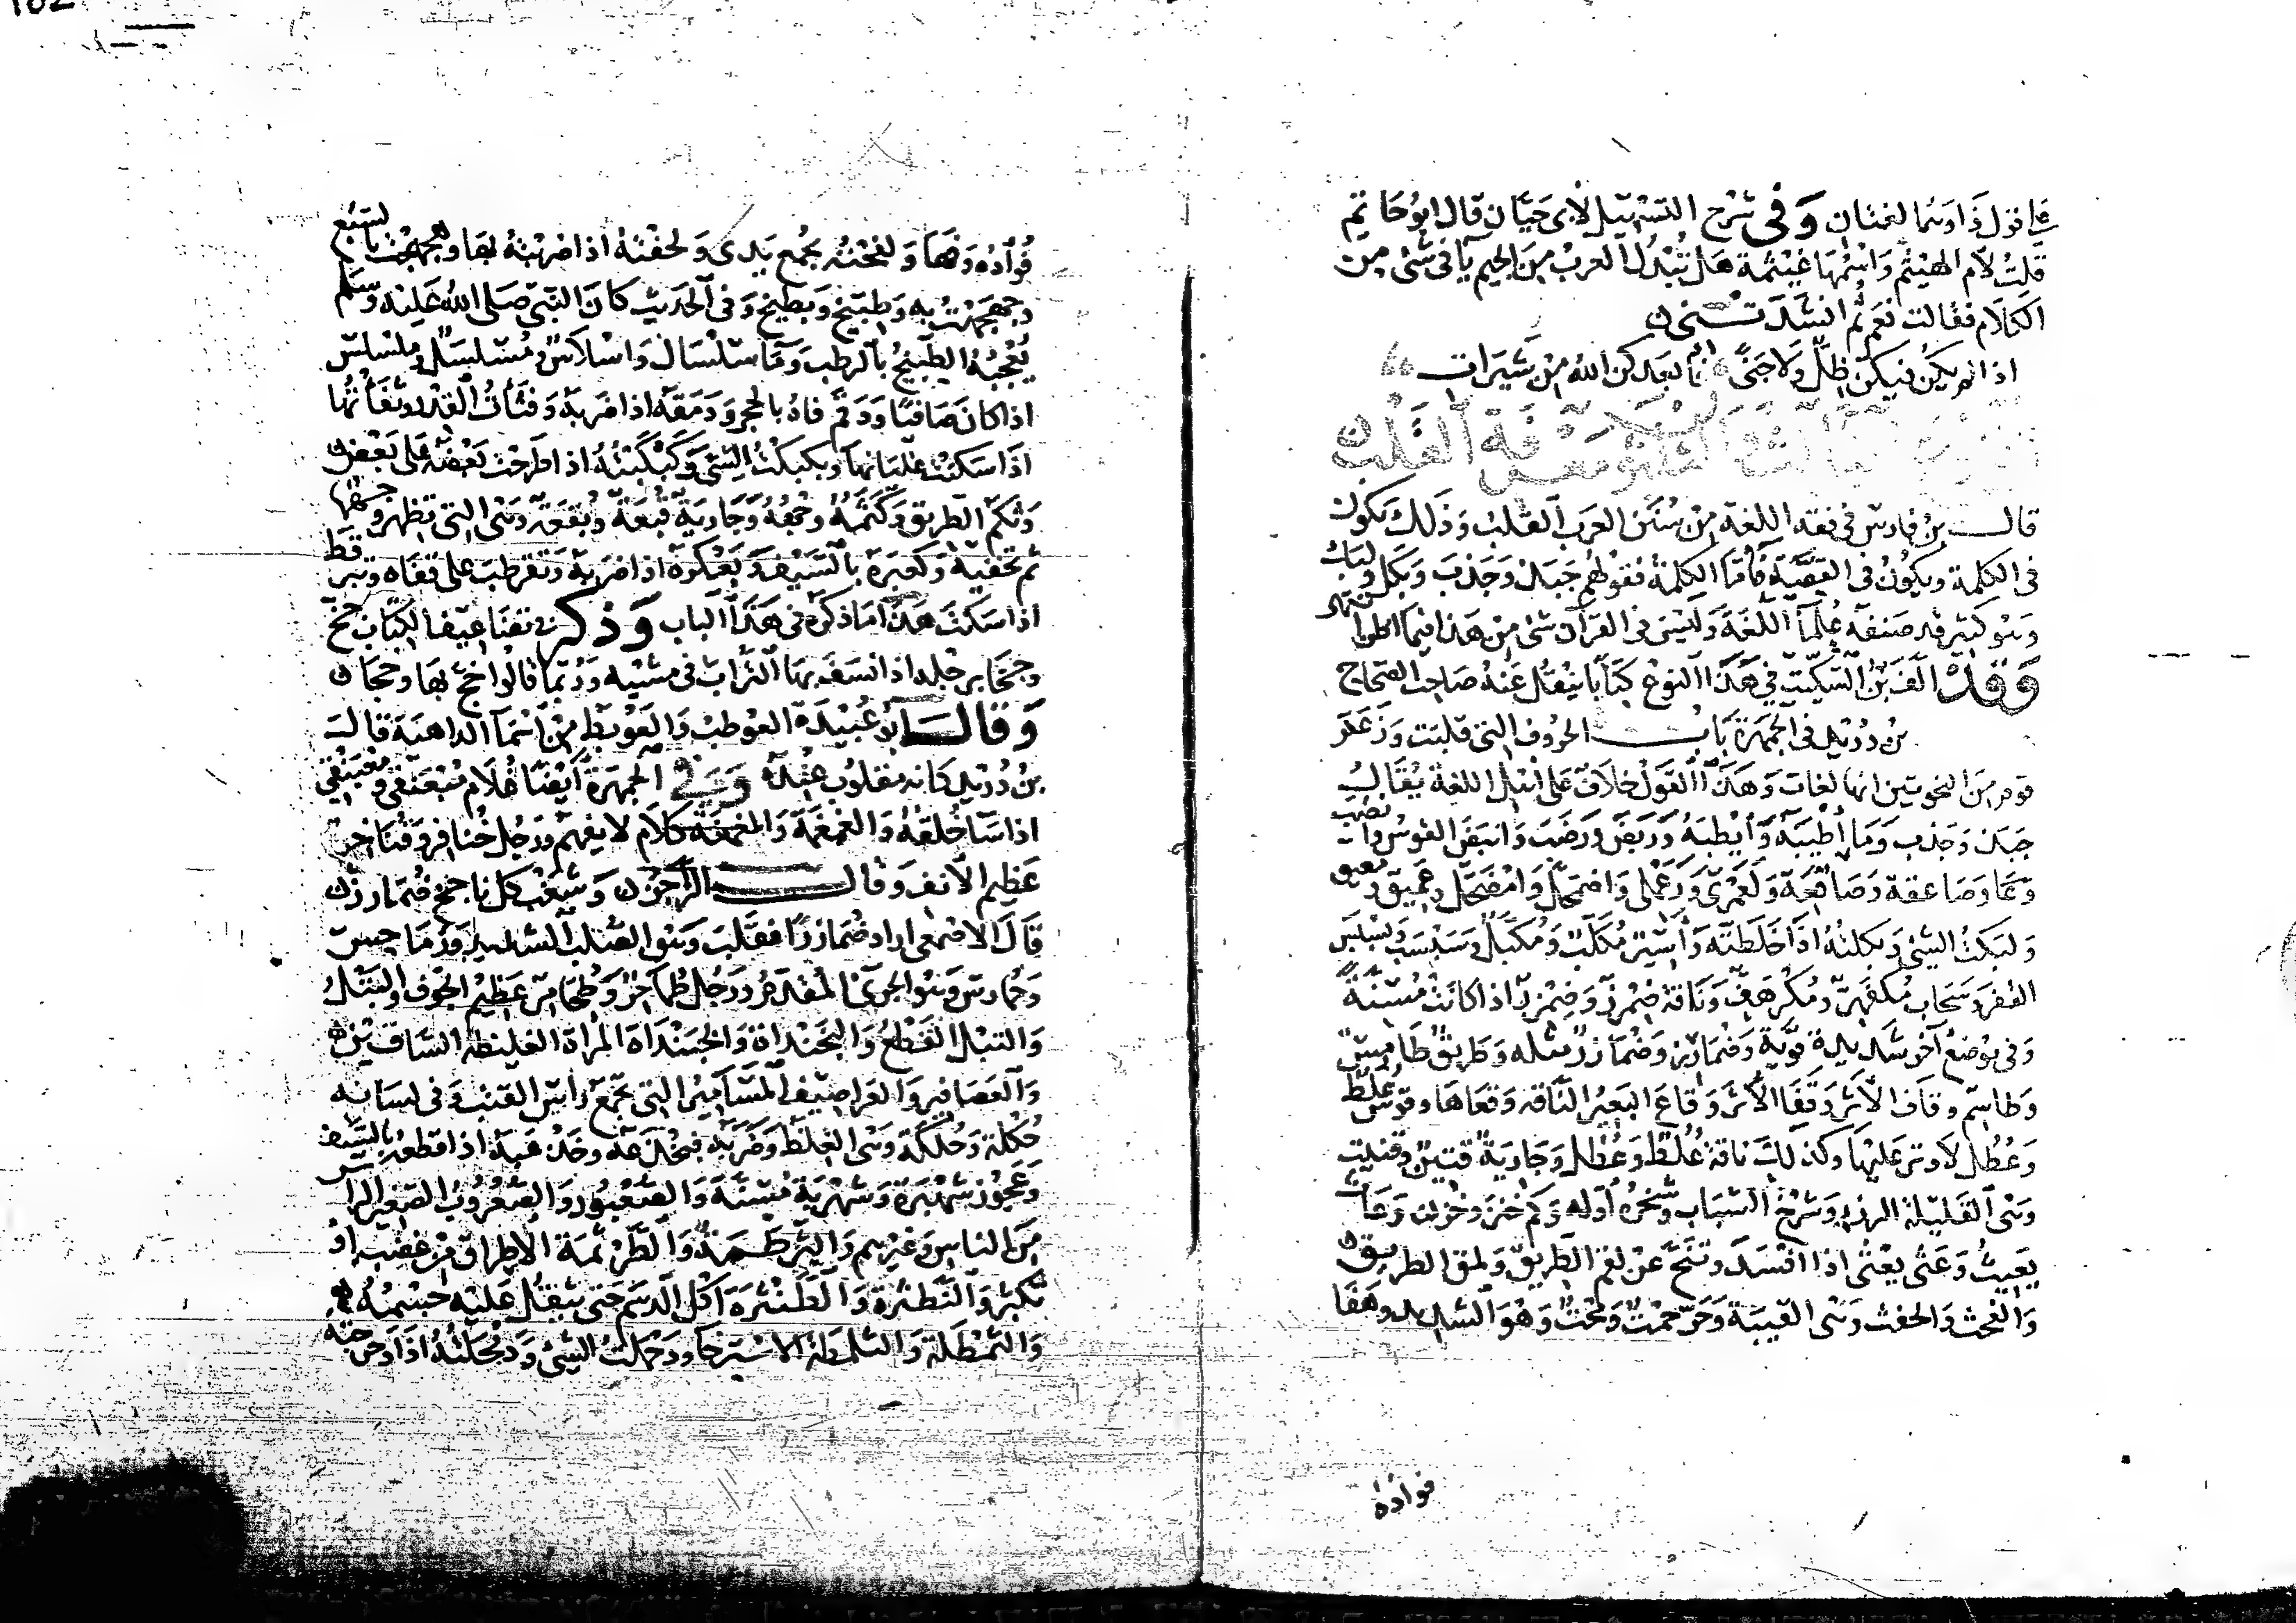 على قول ذا وهما لغتان وفى شرح التسهيل لابى حيان قال ابو حاتم
قلت لام الهيثم واسمها غيثمة هل تبدل العرب من الجيم يا فى شى من
الكلام فقالت نعم ثم انشدتنى
اذا لم يكن فيكن ظل ولا جنى فابعدكن الله من شيرات
النوع الثالث والثلاثون معرفة القلب
قال بن فارس فى فقه اللغة من سنن العرب القلب وذلك يكون
فى الكلمة ويكون فى القصة فاما الكلمة فقولهم جبذ وجذب وبكل ولبك
وهو كثير قد صنفه علما اللغة وليس فى القرآن شى من هذا فيما اظن
وقد الف بن السكيت فى هذا النوع كتابا ينقل عنه صاحب الصحاح
بن دريد فى الجمهرة باب الحروف التى قلبت وزعم
قوم من النحويين انها لغات وهذا القول خلاف على اهل اللغة يقال
جبذ وجذب وما اطيبه وايطبه وربض ورضب وانبض القوس وانضب
وصاعقة وصاقعة ولعمرى ورعملى واضمحل وامضحل وعميق ومعيق
ولبكت الشى وبكلته اذا خلطته واسير مكلب ومكبل وسبسب وبسبس
القفر وسحاب مكفهر ومكرهف وناقة ضمرز وضمزر اذا كانت مسنة
وفى موضع آخر شديدة قوية وضمارز وضمازر مثله وطريق طامس
وطاسم وقاف الاثر وقفا الاثر وقاع البعير الناقه وقعاها وقوس علط
وعطل لا وتر عليها وكذلك ناقة علط وعطل وجارية قتين وقنيت
وهى القليلة الرزء وشرخ الشباب وشخره اوله ولحم خنز وخزن وعاث
يعيث وعثى يعثى اذا افسد وتنح عن لقم الطريق ولمق الطريق
والفحث والحفث وهى القبة وحر حمت ومحت وهو الشديد وهفا
فواده
فؤاده وفها ولفحته بجمع يدى ولحفته اذا ضربته بها وهجهجت بالسبع
وجهجهت به وطبيخ وبطيخ وفى الحديث كان النبى صلى الله عليه وسلم
يعجبه الطبيخ بالرطب وما سلسال ولسلاس ومسلسل وملسلس
اذا كان صافيا ودقم فاه بالحجر ودمقه اذا ضربه وفثأت القدر وثفأتها
اذا سكنت غليانها وبكبكت الشى وكبكبته اذا طرحت بعضه على بعض
وثكم الطريق وكثمه وجهه وجارية قبعة وبقعة وهى التى تظهر وجهها
ثم تخفيه وكعبره بالسيف وبعكره اذا ضربه وتقرطب على قفاه وتبرقط
اذا سقط هذا ما ذكره فى هذا الباب وذكر فى تضاعيف الكتاب جخ
وجخا برجله اذا نسف بها التراب فى مشيه وربما قالوا خج بها وخجا
وقال ابو عبيدة العوطب والعوبط من اسما الداهية قال
بن دريد كانه مقلوب عنده وفى الجمهرة ايضا غلام مبعنقى ومعبنقى
اذا سا خلقه والغمغمة والمغمغة كلام لا يفهم ورجل خنافر وفناخر
عظيم الانف وقال الراجز وشعب كل باجح ضمارز
قال الاصمعى اراد ضمازرا فقلب وهو الصلب الشديد ورماحس
وحمارس وهو الجرى المقدم ورجل طماحر وطحامر عظيم الجوف والبتل
والتبل القطع والبخنداة والخبنداة المراة الغليظة الساقين
والعصافير والعراصيف المسامير التى تجمع راس القتب وفى لسانه
حكلة وحلكة وهى الغلظ وضربه فخذعه وخذعبه اذا قطعه بالسيف
وعجوز شهبرة وشهربة مسنة والصعبور والصعروب الصغير الراس
من الناس وغيرهم والترطمة والطرثمة الاطراق من غضب او
تكبر والنطثرة والطنثرة اكل الدسم حتى يثقل عليه جسمه
والثمطلة والثلمطة الاسترخا ودحملت الشى ودمحلته اذا دحرجته